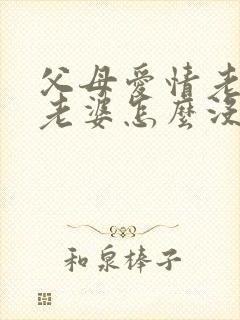 父母愛情老
老婆怎麼沒
和泉棒子